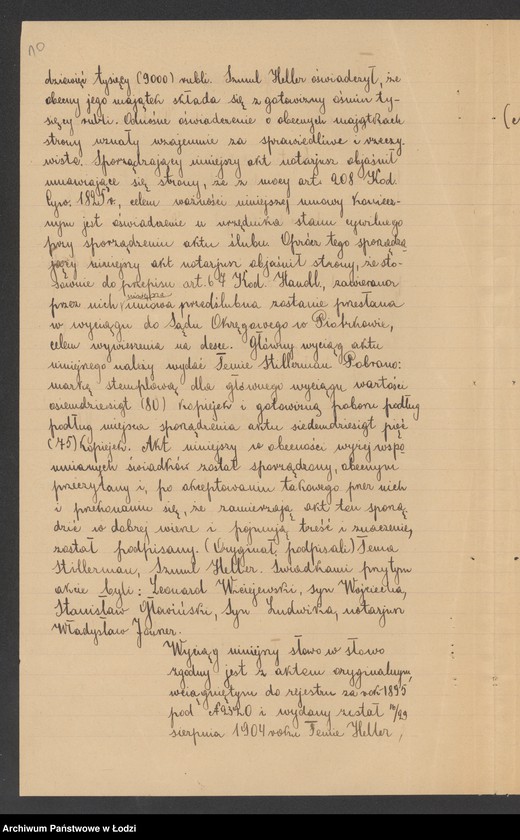 10
dziewięć tysięcy (9000) rubli. Szmul Heller oświadczył, że
obecny jego majątek składa się z gotowizny ośmiu ty-
sięcy rubli. Odnośne oświadczenie o obecnych majątkach
strony uznały wzajemnie za sprawiedliwe i rzeczy-
wiste. Sporządzający niniejszy akt notarjusz objaśnił
umawiające się strony, że z mocy art. 208 Kod.
Cyw. 1825 r., celem ważności niniejszej umowy koniecz-
nym jest oświadczenie u urzędnika stanu cywilnego
przy sporządzeniu aktu ślubu. Oprócz tego sporządza
jący niniejszy akt notarjusz objaśnił strony, że sto-
sownie do przepisu art. 67 Kod. Handl., zawierana
przez nich niniejsza umowa przedślubna zostanie przesłana
w wyciągu do Sądu Okręgowego w Piotrkowie,
celem wywieszenia na desce. Główny wyciąg aktu
niniejszego należy wydać Temie Stillerman. Pobrano:
markę stemplową dla głównego wyciągu wartości
osiemdziesiąt (80) kopiejek i gotowizną poboru podług
podług miejsca sporządzenia aktu siedemdziesiąt pięć
(75) kopiejek. Akt niniejszy w obecności wyżej wspo
mnianych świadków został sporządzony, obecnym
przeczytany i, po akceptowaniu takowego przez nich
i przekonaniu się, że zamierzają akt ten sporzą
dzić w dobrej wierze i pojmują treść i znaczenie,
został podpisany. (Oryginał podpisali) Tema
Stillerman, Szmul Heller. Świadkami przytym
akcie byli: Leonard Wiciejewski, syn Wojciecha,
Stanisław Głowiński, syn Ludwika, notarjusz
Władysław Jonszer.
Wyciąg niniejszy słowo w słowo
zgodny jest z aktem oryginalnym,
wciągniętym do rejestru za rok 1895
pod №2320 i wydany został 16/29
sierpnia 1904 roku Temie Heller,
Archiwum Państwowe w Łodzi